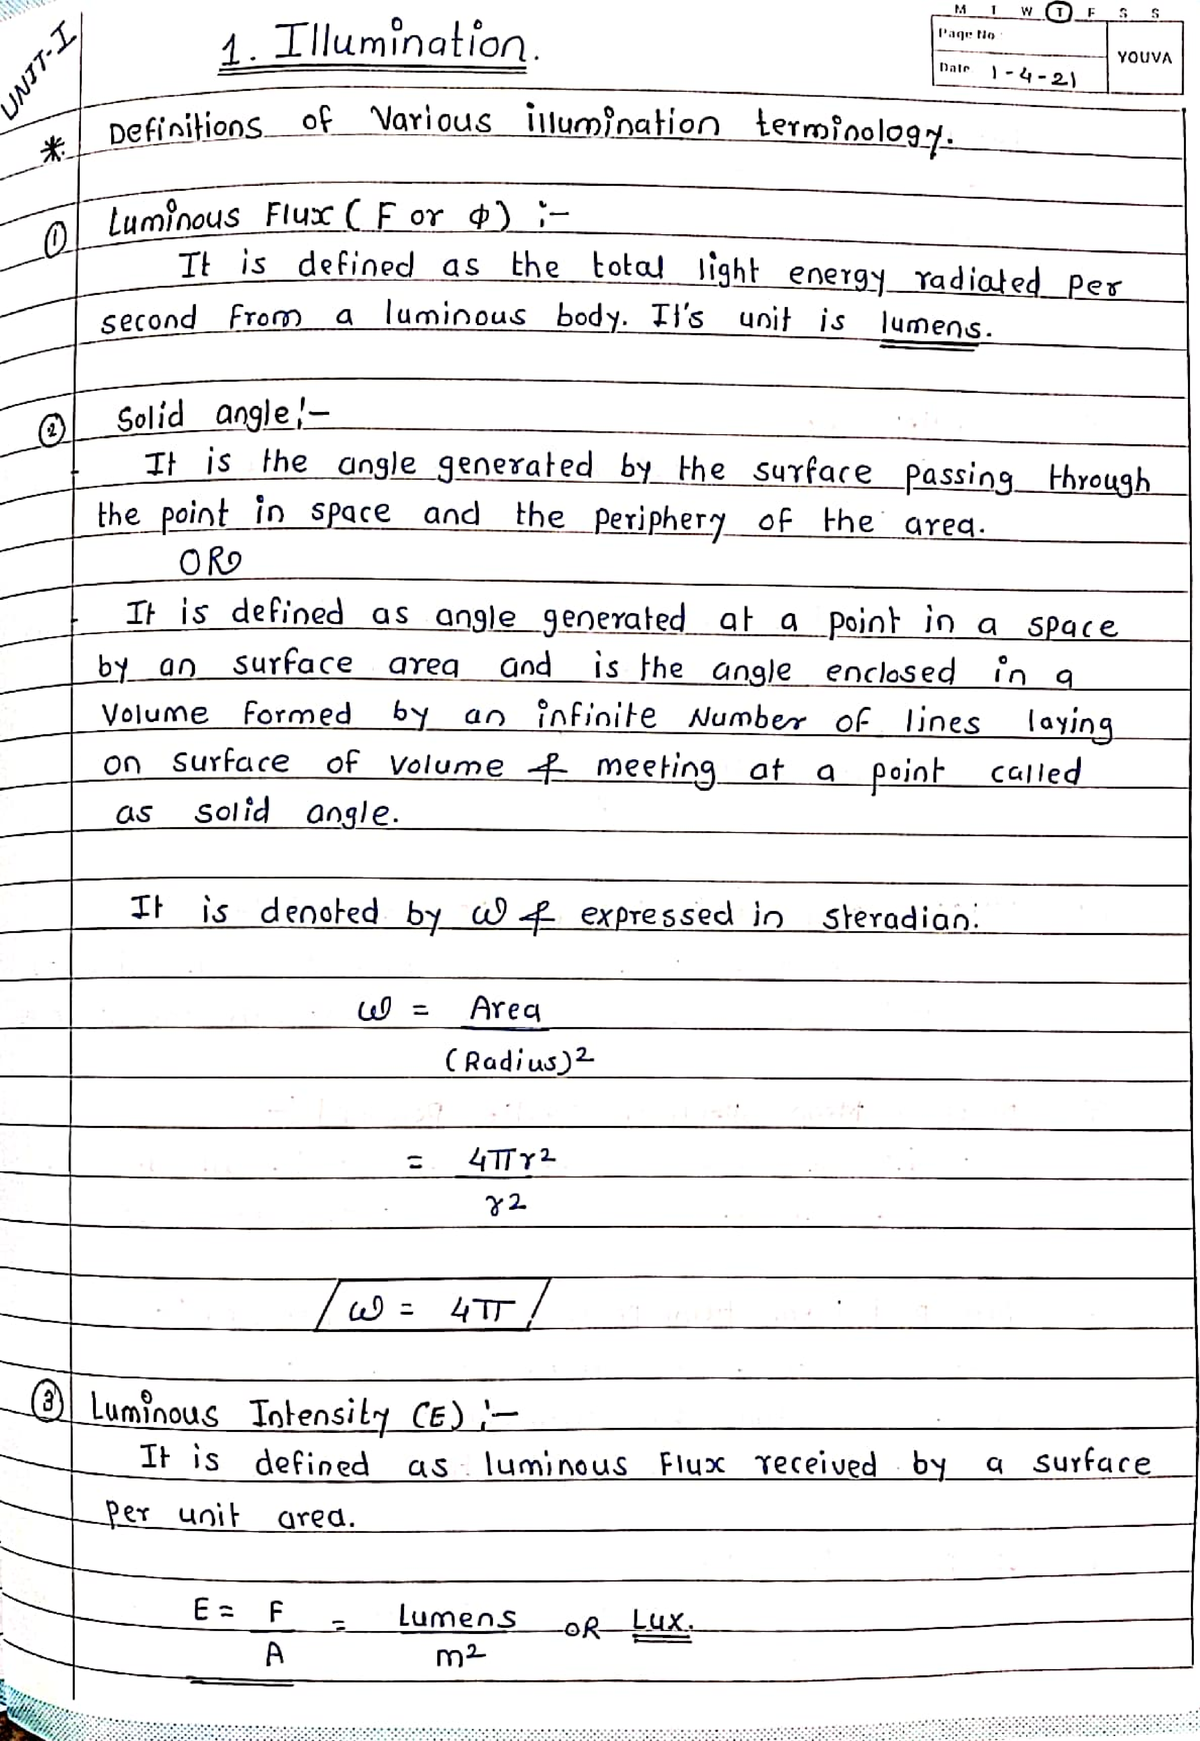 M T W T F S S
UNIT-I
1. Illumination.
Page No
YOUVA
Date 1-4-21
* Definitions of Various illumination terminology.
① Luminous Flux ( F or Φ ) :-
It is defined as the total light energy radiated per
second from a luminous body. It's unit is lumens.
② Solid angle:-
It is the angle generated by the surface passing through
the point in space and the periphery of the area.
OR
It is defined as angle generated at a point in a space
by an surface area and is the angle enclosed in a
Volume formed by an infinite Number of lines laying
on surface of volume & meeting at a point called
as solid angle.
It is denoted by ω & expressed in steradian.
ω = Area
(Radius)2
= 4πr2
r2
ω = 4π
③ Luminous Intensity (E) :-
It is defined as luminous Flux received by a surface
per unit area.
E = F = Lumens OR Lux.
A m2